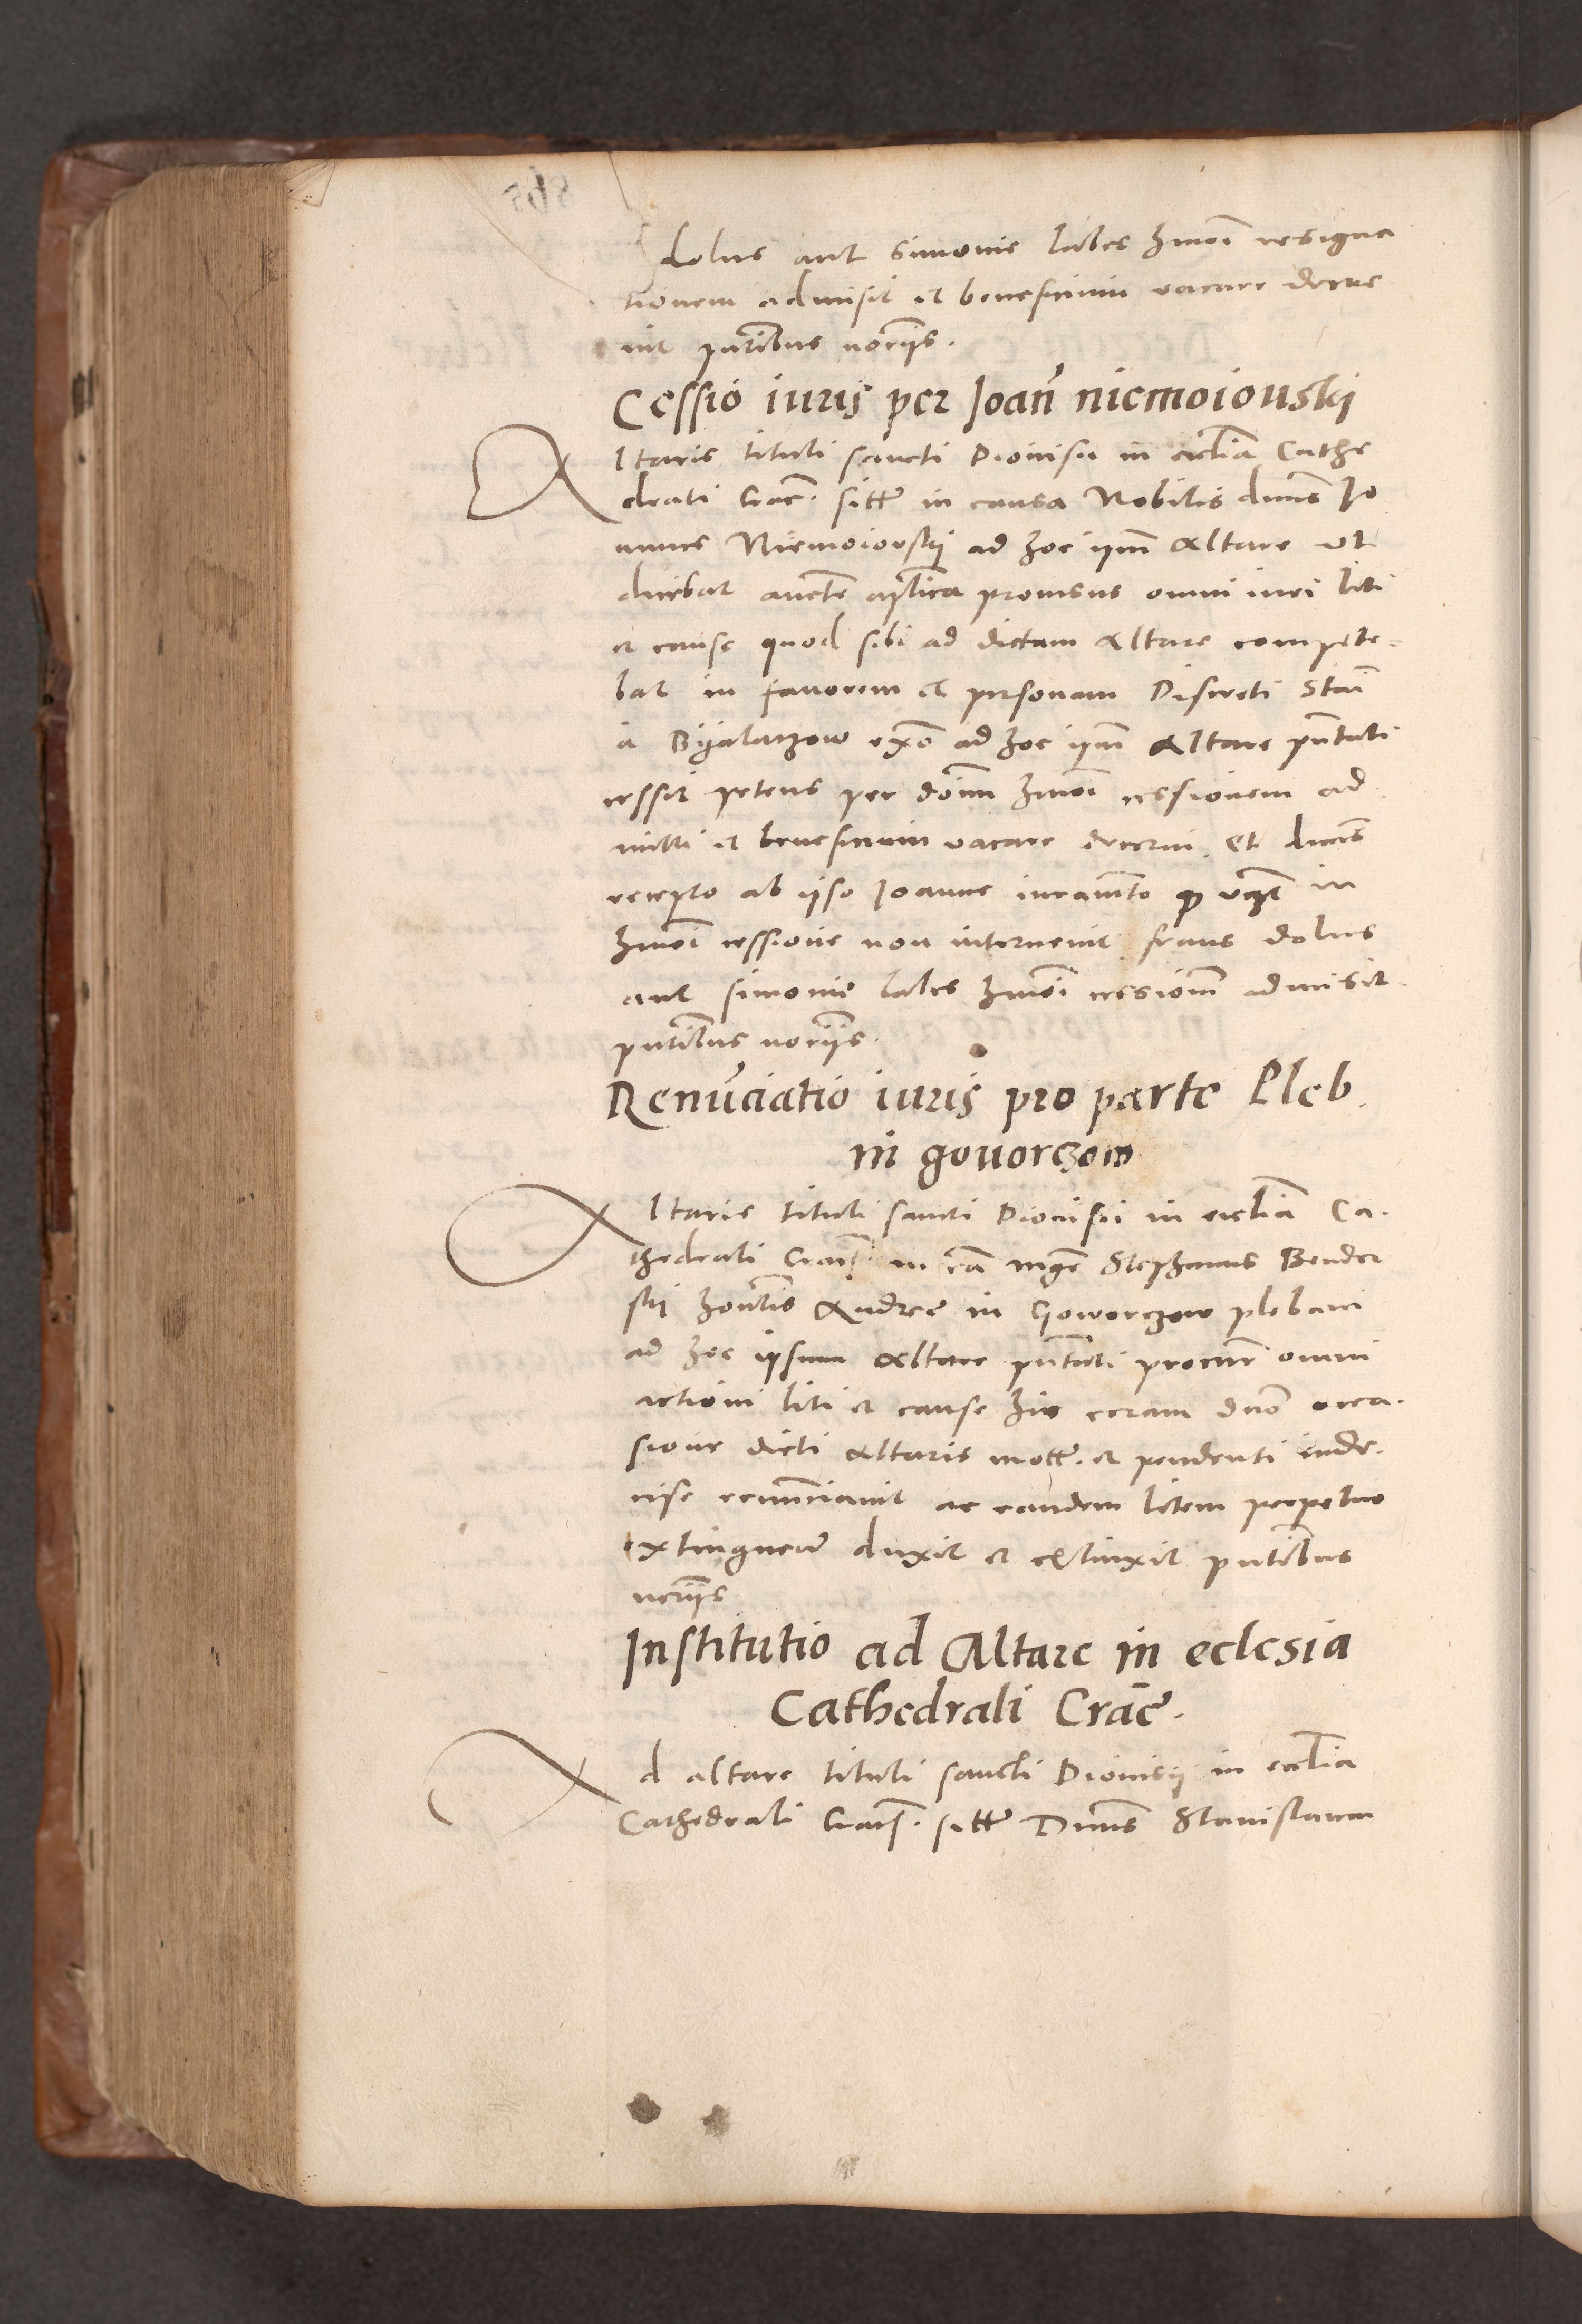 dolus aut simonie labes hmoi resigna
tionem admisit et beneficium vacare decre
uit pntibus notriis.
Cessio iuris per Joan niemoiouski
Altaris tituli sancti Dionisii in ecclia Cathe
drali Crac. sitti in causa Nobilis dnus Jo
annes Niemoiovskij ad hoc ipm Altare vt
dicebat aucte aplica prouisus omni iuri liti
et cause quod sibi ad dictam Altare compete-
bat in fauorem et personam Discreti Stani
a Byalaczow ex ad hoc ipm Altare pntati
cessit petens per dnum hmoi cessionem ad
mitti et beneficium vacare decerni. Et dnus
recepto ab ipso Joanne iuramto in
hmoi cessione non interuenit fraus dolus
aut simonie labes hmoi cessionem admisit
pntibus notriis.
Renunciatio iuris pro parte Pleb.
in gouorczow
Altaris tituli sancti Dionisii in ecclia Ca-
thedrali Crac. in ca mgr Stephanus Bender
skij hontis Andree in Goworczow plebani
ad hoc ipsum Altare pntati procur omni
actioni liti et cause hic coram dno occa-
sione dicti Altaris mot. et pendenti inde.
cise renunciauit ac eandem litem perpetuo
extinguere duxit et extinxit pntibus
notriis
Institutio ad Altare in eclesia
Cathedrali Crace.
Ad altare tituli sancti Dionisij in ecclia
Cathedrali Crac. sitti Dnus Stanislaum